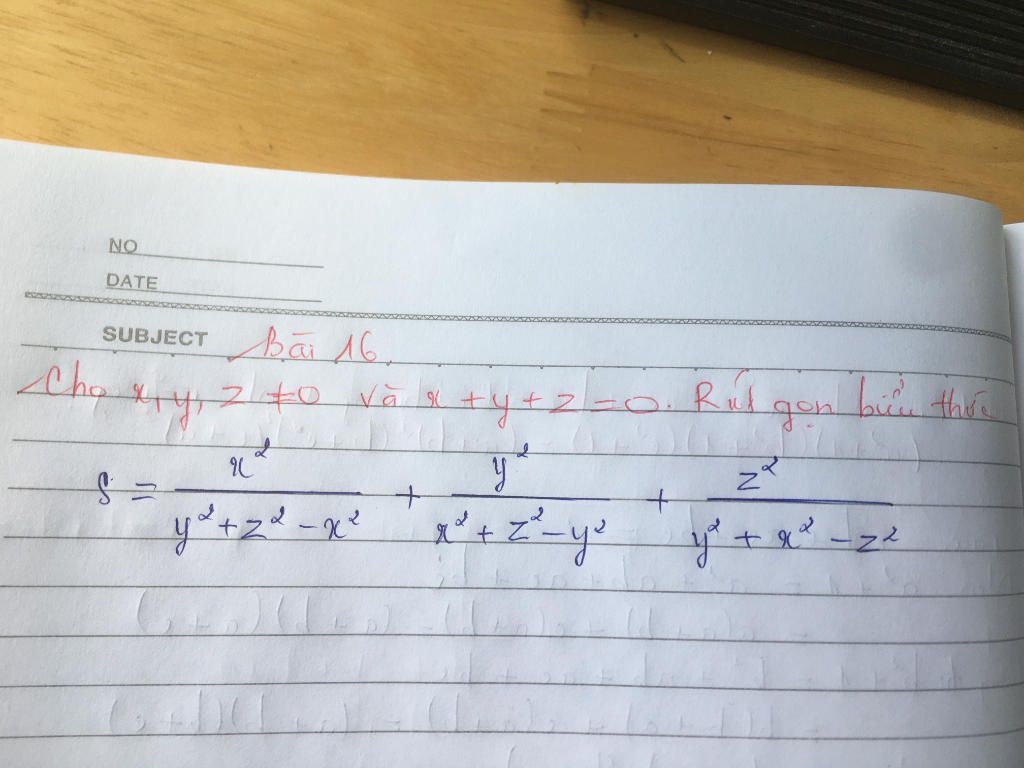 NO
DATE
SUBJECT Bài 16.
Cho x, y, z ≠ 0 và x + y + z = 0. Rút gọn biểu thức
S = x²/(y² + z² - x²) + y²/(x² + z² - y²) + z²/(y² + x² - z²)